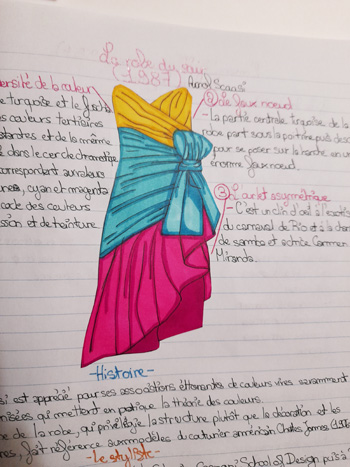 La robe du soir
(1987) Arnold Scaasi
ersité de couleur
e turquoise et le
s couleurs tertiaires
et de la même
dans le cercle chromatique
correspondent aux couleurs
cyan et magenta
des couleurs
et de teinture.
② Le faux nœud
-La partie centrale turquoise de la
robe part sous la poitrine puis
pour se poser sur la hanche en un
énorme faux nœud.
③ L'ourlet asymétrique
-C'est un clin d'œil à
du carnaval de Rio et à la
de samba et actrice Carmen
Miranda.
-Histoire-
si est apprécié pour ses associations étonnantes de couleurs vives
qui mettent en pratique la théorie des couleurs.
de la robe, qui privilégie la structure plutôt que la décoration et les
fait référence aux modèles du couturier américain Charles James
-Le styliste-
School of Design puis à